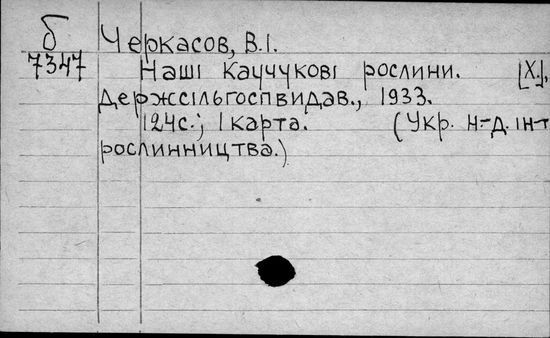 б Черкасов, В.І.
7347 Наші каучукові рослини. [Х.],
Держсільгоспвидав., 1933.
124с.; 1 карта. (Укр. н-д. ін-т
рослинництва.)